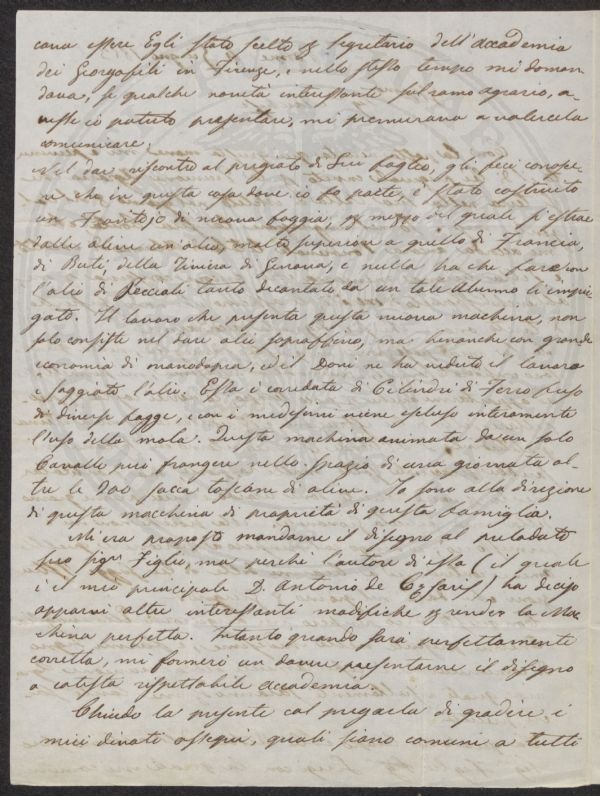 cava essere Egli stato scelto p segretario dell'accademia
dei Georgofili in Firenze, e nello stesso tempo mi doman-
dava, se qualche novità interessante sul ramo agrario, a-
vesse io potuto presentare, mi premurava a volercela
comunicare;
Nel dar riscontro al pregiato di Suo foglio, gli feci conosce-
re che in questa casa dove io fo parte, è stato costruito
un Frantojo di nuova foggia, p mezzo del quale s'estrae
dalle olive un'olio, molto superiore a quello di Francia,
di Buti, della Riviera di Genova, e nulla ha che fare con
l'olio di Peccioli tanto decantato da un tale Alunno li impie-
gato. Il lavoro che presenta questa nuova macchina, non
solo consiste nel dare olio sopraffino, ma benanche con grande
economia di manodopra, ed il Doni ne ha veduto il lavoro
e saggiato l'olio. Essa è corredata di Cilindri di Ferro fuso
di diverse fogge, e con i medesimi viene escluso interamente
l'uso della mola. Questa machina animata da un solo
Cavallo può frangere nello spazio di una giornata ol-
tre le 200 sacca toscane di olive. Io sono alla direzione
di questa macchina di proprietà di questa Famiglia.
Mi era proposto mandarne il disegno al prelodato
suo sigr Figlio, ma perchè l'autore di essa (il quale
è il mio principale D. Antonio de Cesaris) ha deciso
apporvi altre interessanti modifiche p render la Mac-
china perfetta. Intanto quando sarà perfettamente
corretta, mi formerò un dovere presentarne il disegno
a cotesta rispettabile accademia.
Chiudo la presente col pregarla di gradire i
miei divoti ossequi, quali siano comuni a tutti